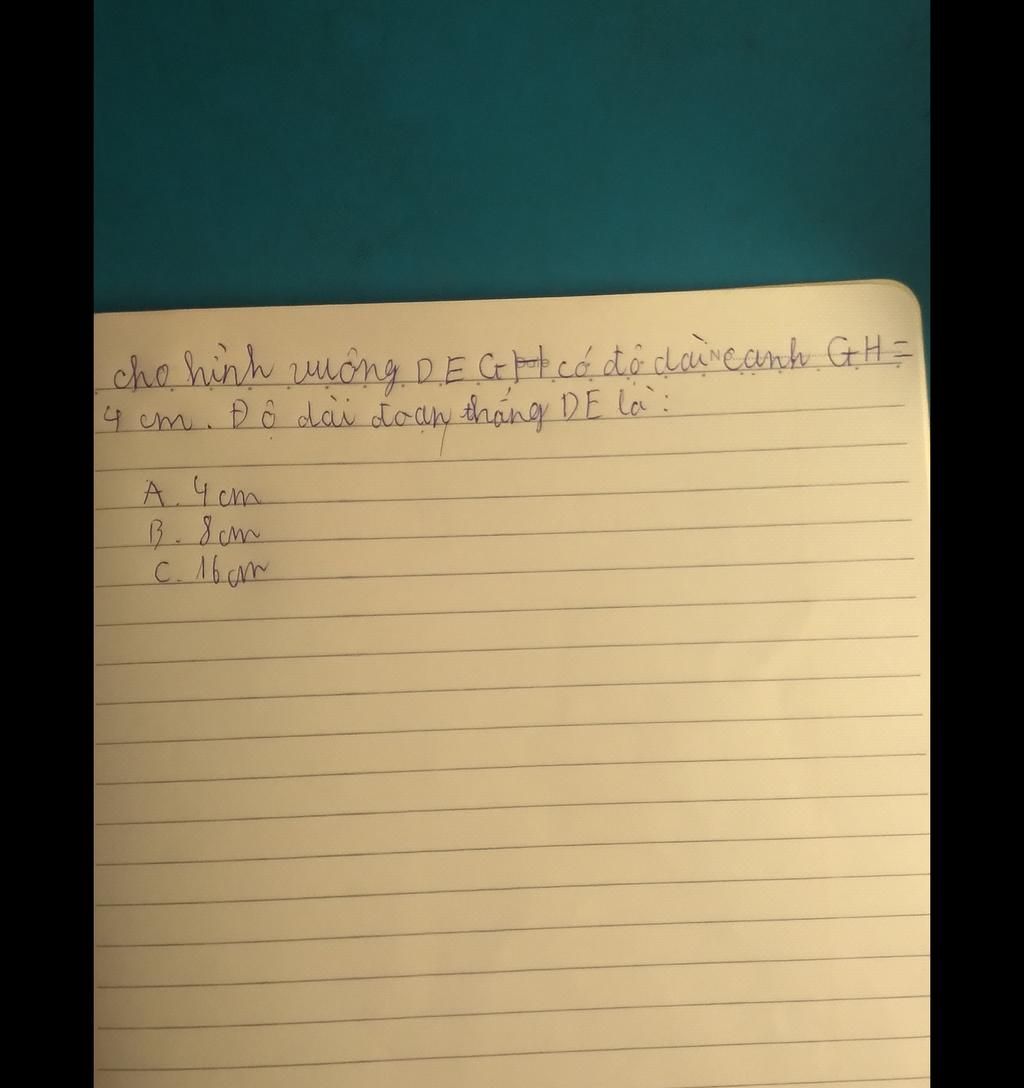 cho hình vuông DEGH có độ dài cạnh GH =
4 cm. Độ dài đoạn thẳng DE là:
A. 4 cm
B. 8 cm
C. 16 cm